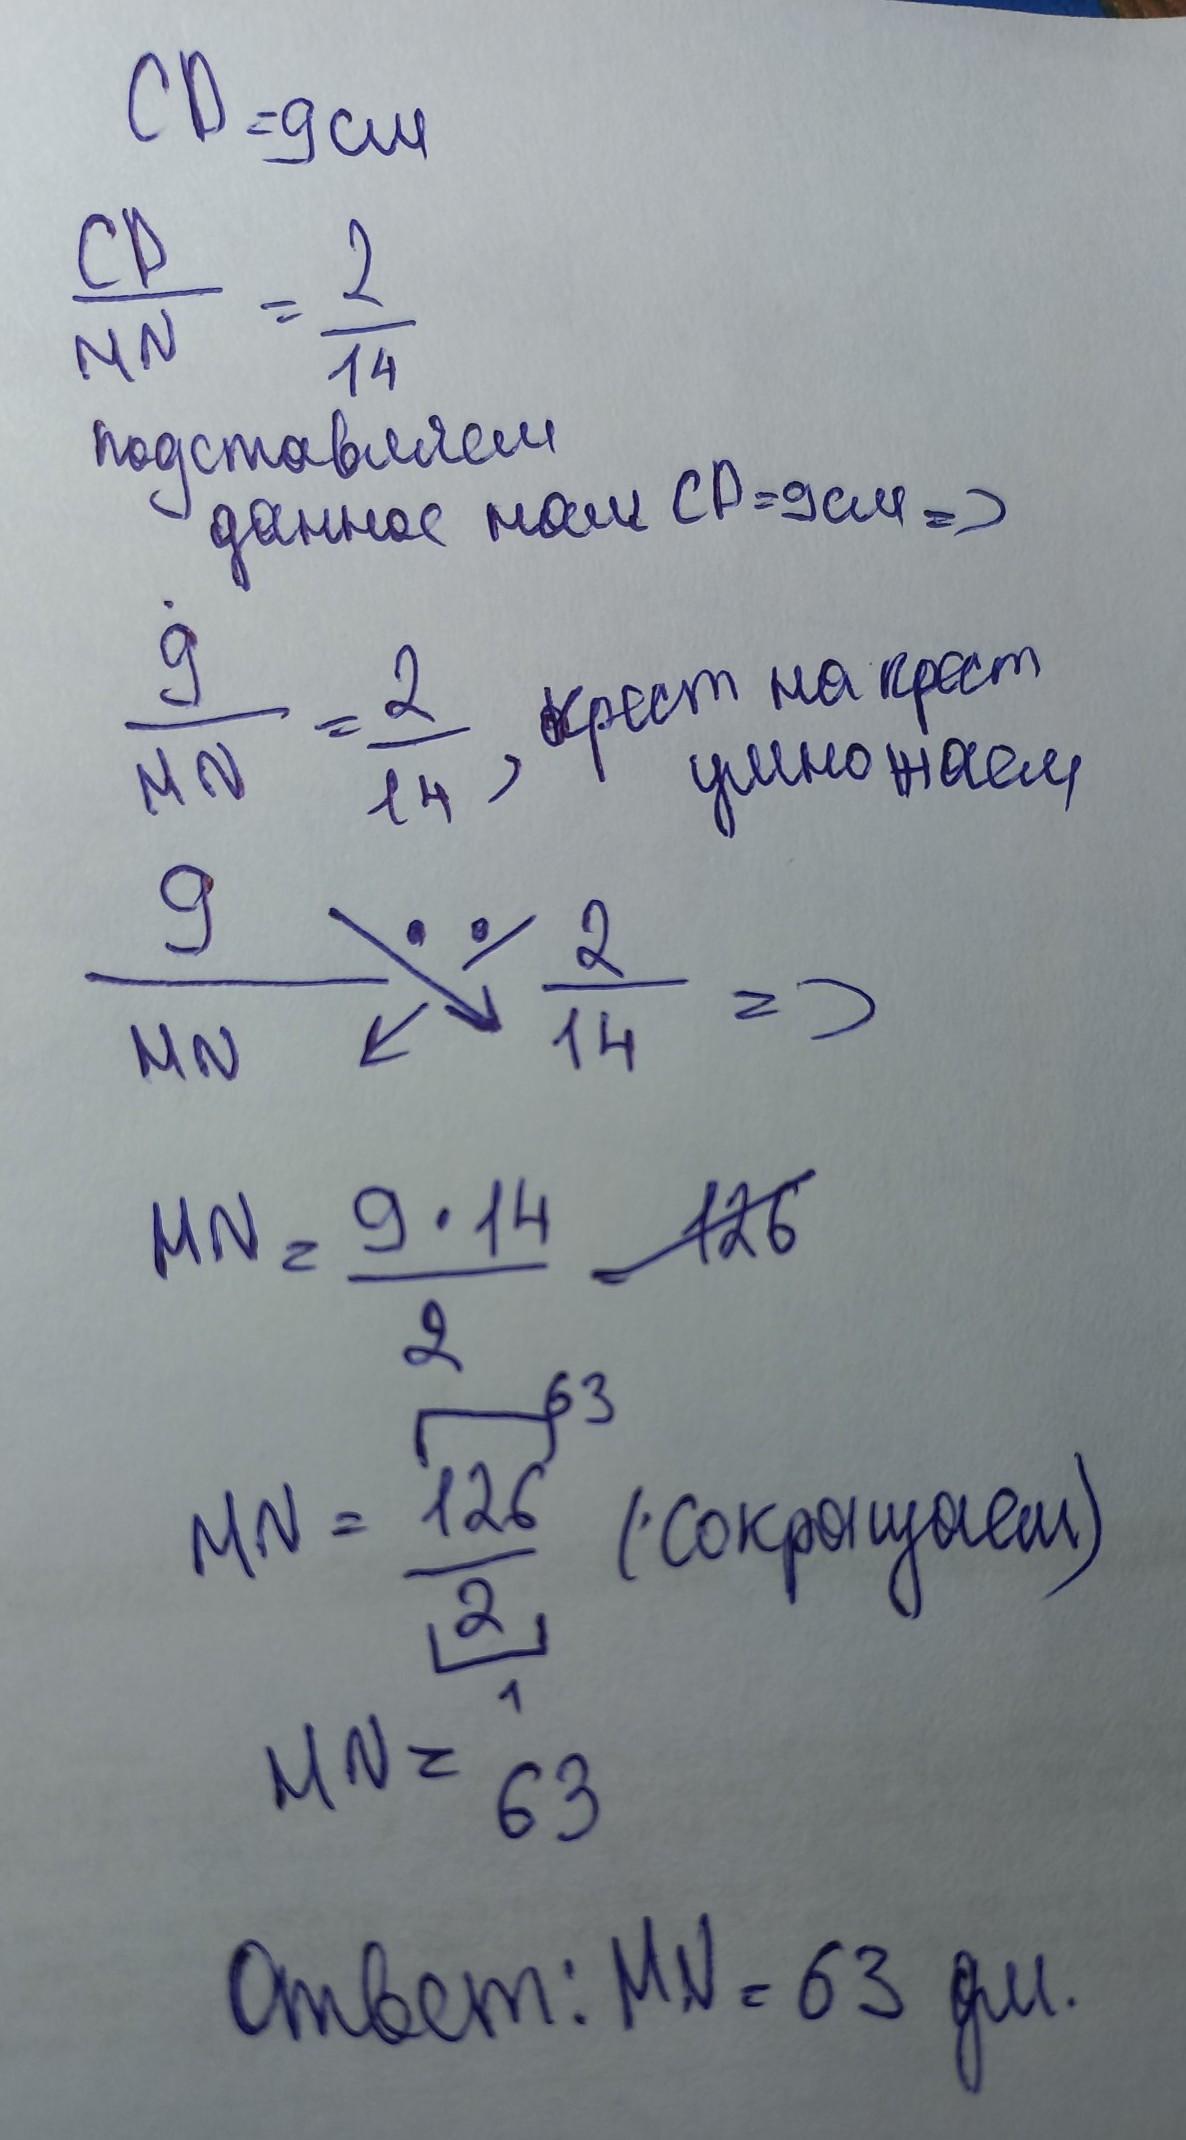 CD = 9 см
CD
MN
= 2
14
подставляем
данное нам CD = 9 см =>
9
MN
= 2
14
, крест на крест
умножаем
9
MN
2
14
=>
MN = 9 · 14
2
= 126
63
MN = 126 (сокращаем)
2
1
MN = 63
Ответ: MN = 63 дм.